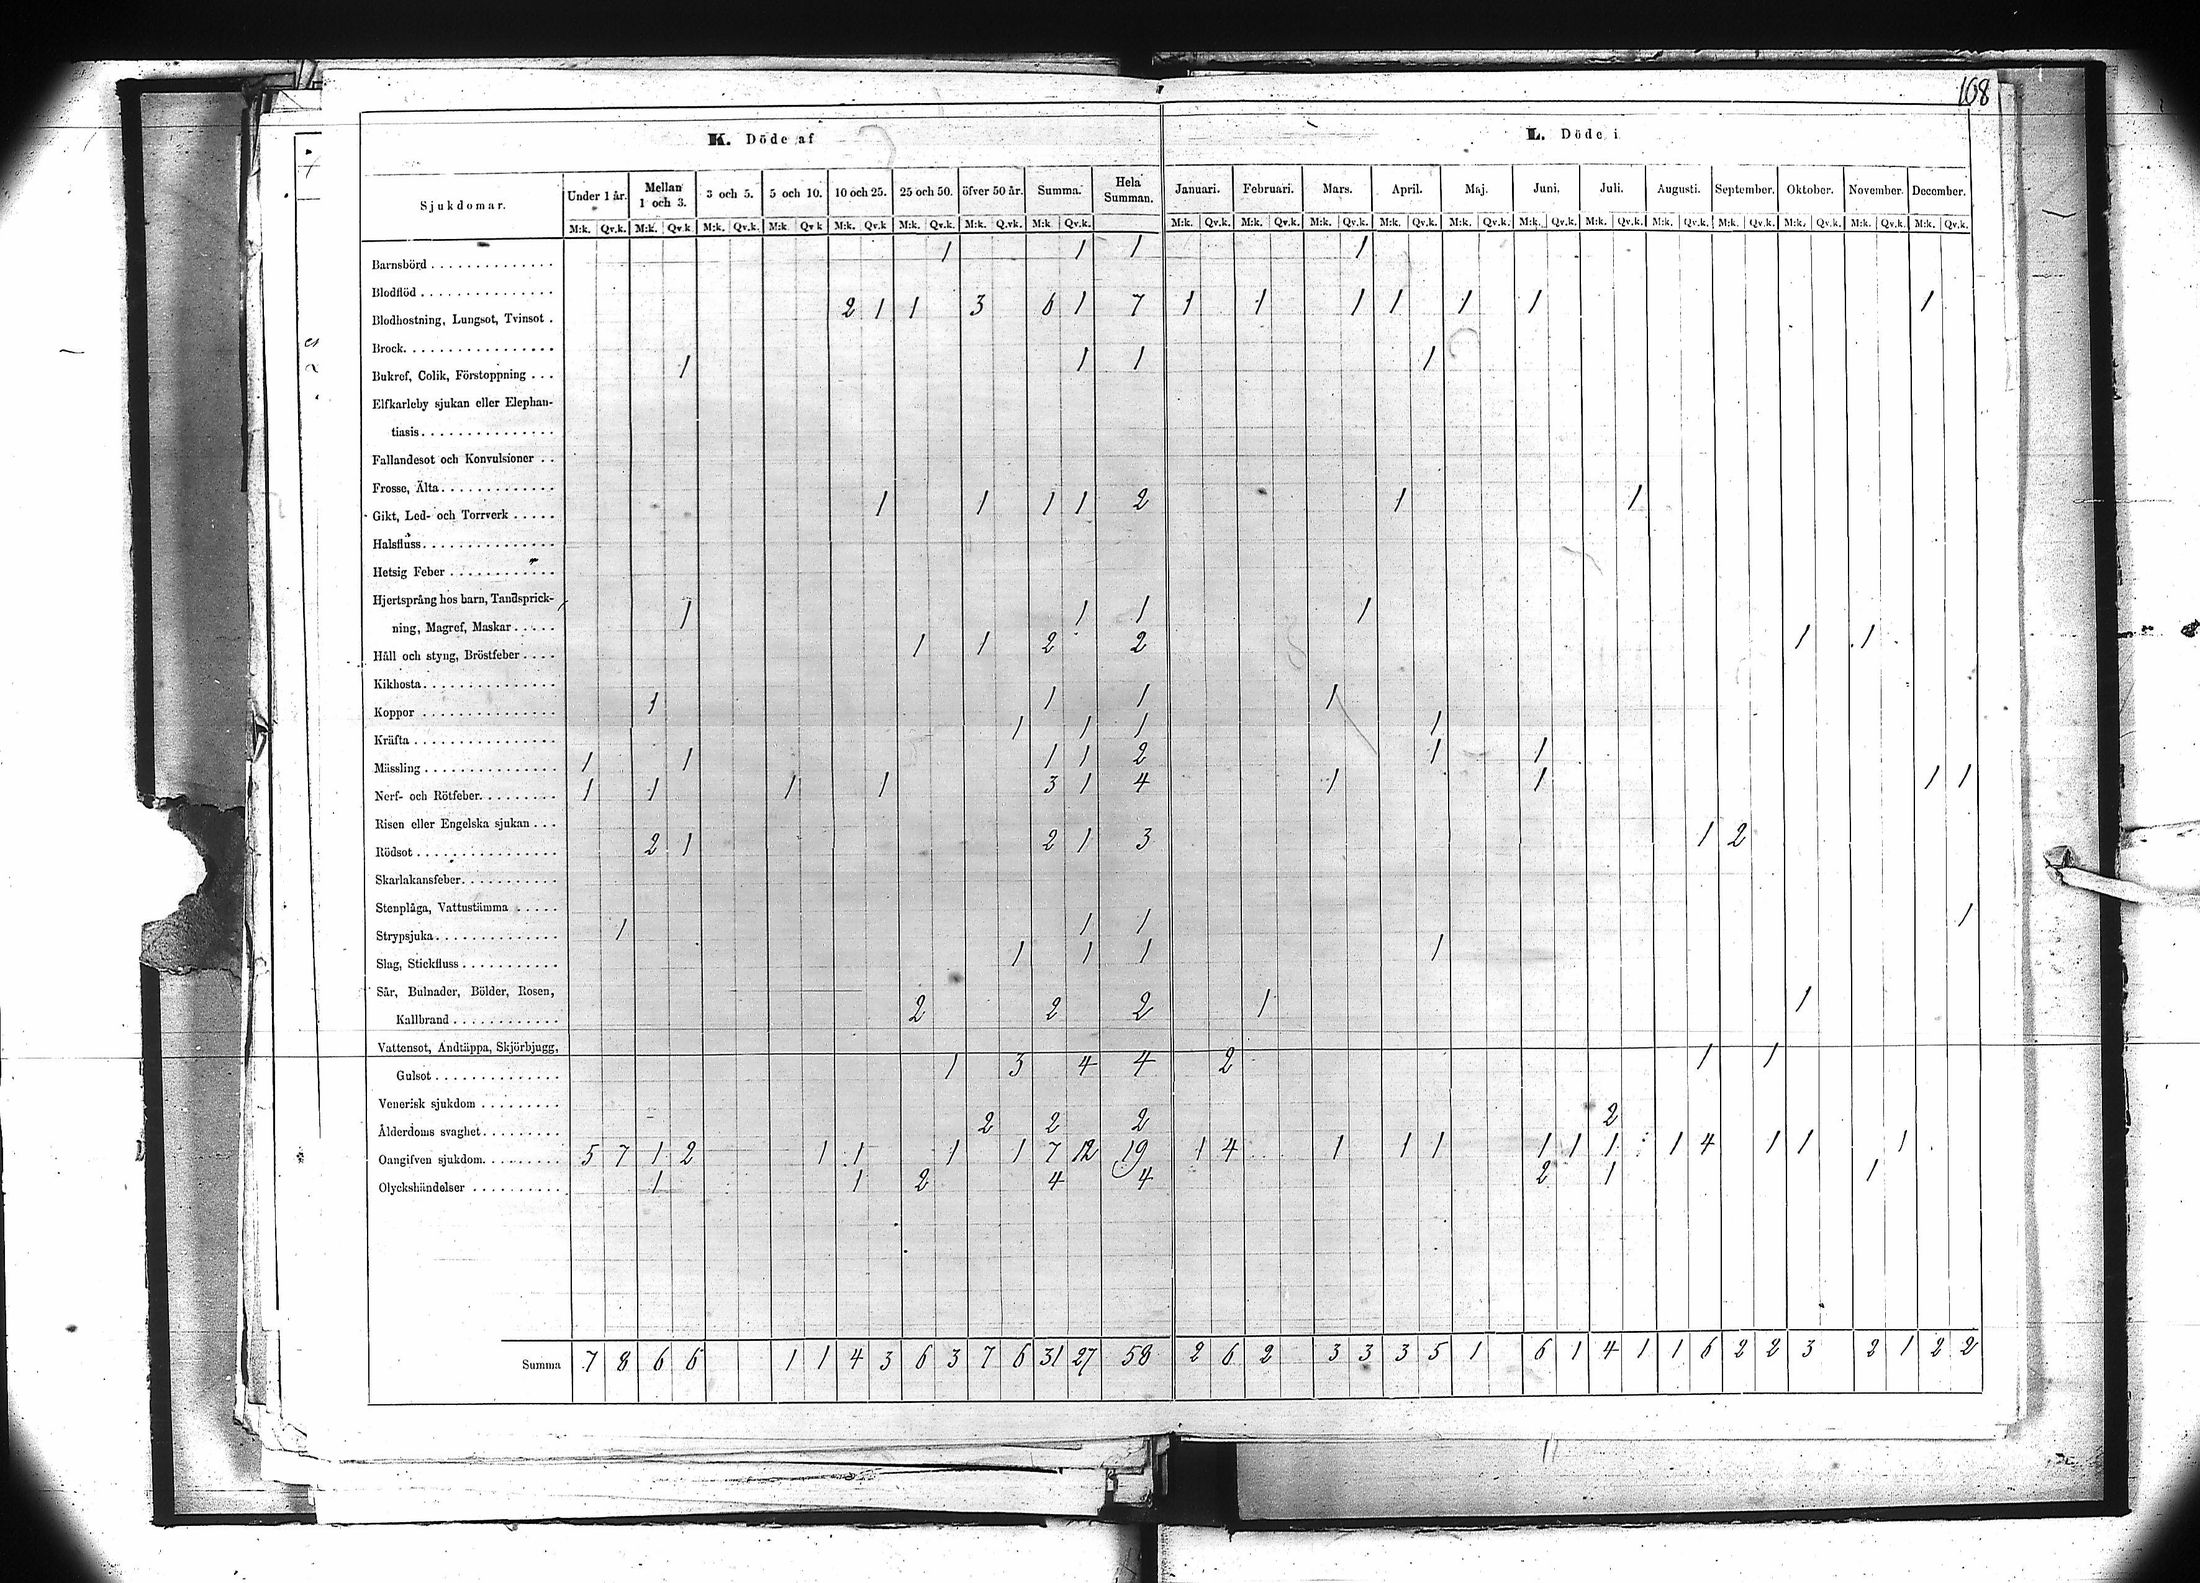 168
K. Döde af L. Döde i
Sjukdomar. Under 1 år. Mellan 1 och 3. 3 och 5. 5 och 10. 10 och 25. 25 och 50. öfver 50 år. Summa. Hela Summan. Januari. Februari. Mars. April. Maj. Juni. Juli. Augusti. September. Oktober. November. December.
M:k. Qv.k. M:k. Qv.k M:k. Qv.k. M:k. Qv k M:k. Qv.k M:k. Qv.k. M:k. Q.vk. M:k Qv.k. M:k. Qv.k. M:k. Qv.k. M:k. Qv.k. M:k. Qv.k. M:k. Qv.k. M:k. Qv.k. M:k. Qv.k. M:k. Qv.k. M:k. Qv.k. M:k. Qv.k. M:k. Qv.k. M:k. Qv.k.
Barnsbörd 1 1 1 1
Blodflöd
Blodhostning, Lungsot, Tvinsot 2 1 1 3 6 1 7 1 1 1 1 1 1 1
Brock
Bukref, Colik, Förstoppning 1 1 1 1
Elfkarleby sjukan eller Elephan-
tiasis
Fallandesot och Konvulsioner
Frosse, Älta
Gikt, Led- och Torrverk 1 1 1 1 2 1 1
Halsfluss
Hetsig Feber
Hjertsprång hos barn, Tandsprick-
ning, Magref, Maskar 1 1 1 1
Håll och styng, Bröstfeber 1 1 2 2 1 1
Kikhosta
Koppor 1 1 1 1
Kräfta 1 1 1 1
Mässling 1 1 1 1 2 1 1
Nerf- och Rötfeber 1 1 1 1 3 1 4 1 1 1 1
Risen eller Engelska sjukan
Rödsot 2 1 2 1 3 1 2
Skarlakansfeber
Stenplåga, Vattustämma
Strypsjuka 1 1 1 1
Slag, Stickfluss 1 1 1 1
Sår, Bulnader, Bölder, Rosen,
Kallbrand 2 2 2 1 1
Vattensot, Andtäppa, Skjörbjugg,
Gulsot 1 3 4 4 2 1 1
Venerisk sjukdom
Ålderdoms svaghet 2 2 2 2
Oangifven sjukdom 5 7 1 2 1 1 1 1 7 12 19 1 4 1 1 1 1 1 1 1 4 1 1 1
Olyckshändelser 1 1 2 4 4 2 1 1
Summa 7 8 6 6 1 1 4 3 6 3 7 6 31 27 58 2 6 2 3 3 3 5 1 6 1 4 1 1 6 2 2 3 2 1 2 2